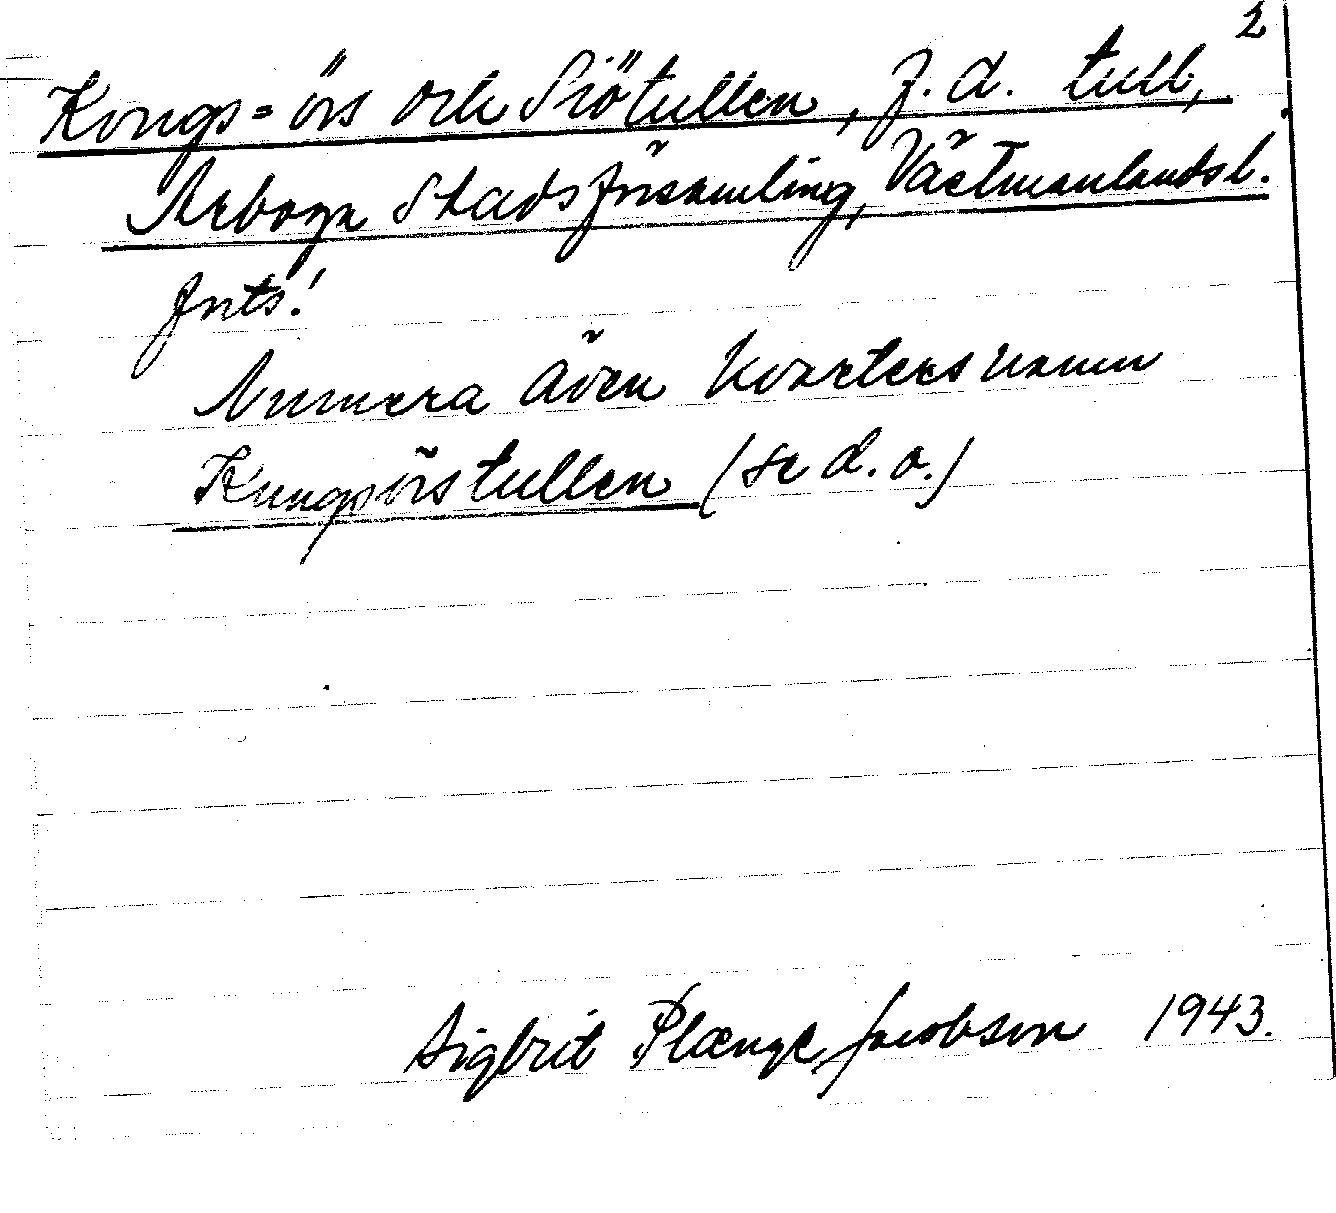 2
Kongs=örs och Siötullen, f.d. tull,
Arboga Stadsförsamling, Västmanlandsl.
forts!
Numera även kvartersnamn
Kungsörstullen (se d.o.)
Sigbrit Plænge Jacobson 1943.